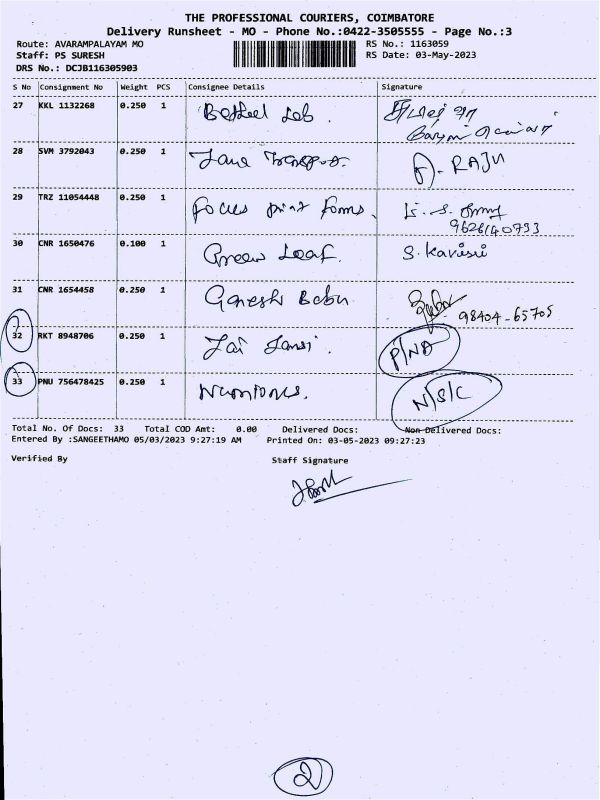 THE PROFESSIONAL COURIERS, COIMBATORE
Delivery Runsheet - MO - Phone No.:0422-3505555 - Page No.:3
Route: AVARAMPALAYAM MO RS No.: 1163059
Staff: PS SURESH RS Date: 03-May-2023
DRS No.: DCJB116305903
S No Consignment No Weight PCS Consignee Details Signature
27 KKL 1132268 0.250 1 Bethel Lab.
28 SVM 3792043 0.250 1 A. RAJU
29 TRZ 11054448 0.250 1 Focus print forms.
9626140793
30 CNR 1650476 0.100 1 Green Leaf. S. Kavisri
31 CNR 1654458 0.250 1 Ganesh Babu
98404-65705
32 RKT 8948706 0.250 1 Jai P/NA
33 PNU 756478425 0.250 1 N/S/C
Total No. Of Docs: 33 Total COD Amt: 0.00 Delivered Docs: Non Delivered Docs:
Entered By :SANGEETHAMO 05/03/2023 9:27:19 AM Printed On: 03-05-2023 09:27:23
Verified By Staff Signature
2